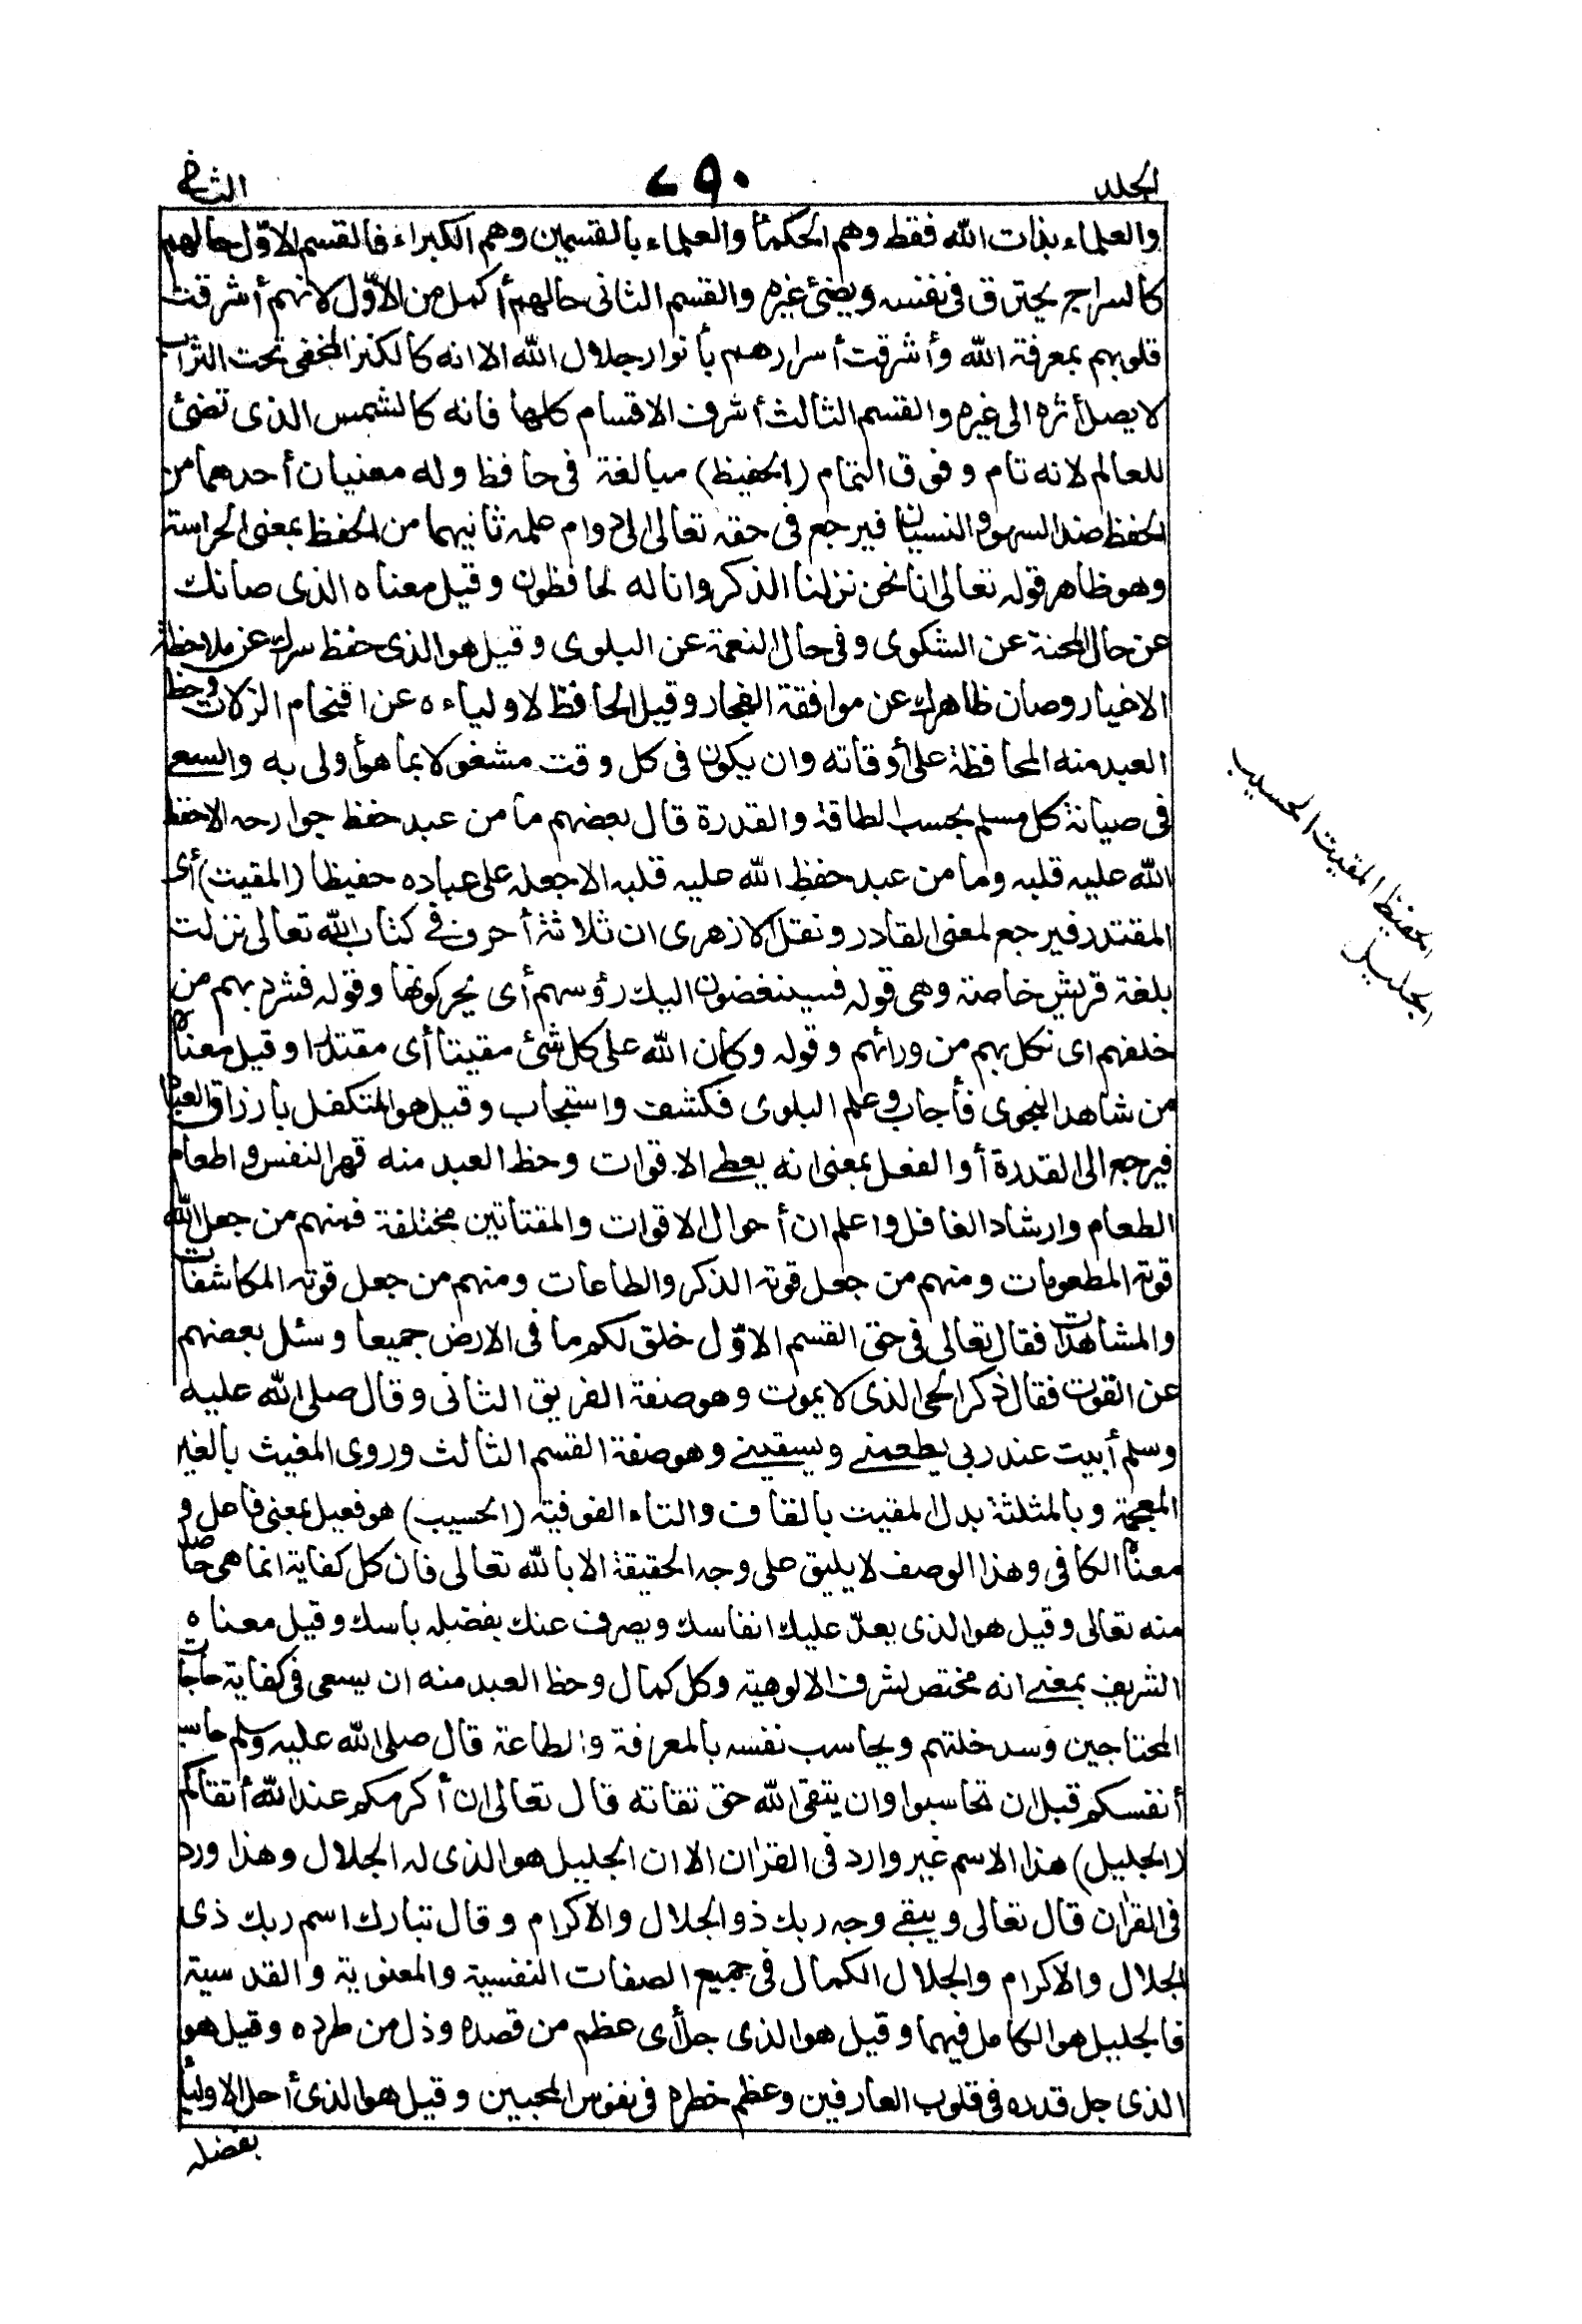 الجلد ٧٩٠ الثانى
والعلماء بذات الله فقط وهم الحكماء والعلماء بالقسمين وهم الكبراء فالقسم الاوّل حالهم
كالسراج يحترق فى نفسه ويضئ غيره والقسم الثانى حالهم أكمل من الاوّل لانهم أشرقت
قلوبهم بمعرفة الله وأشرقت أسرارهم بأنوار جلال الله الا انه كالكنز المخفى تحت التراب
لا يصل أثره الى غيره والقسم الثالث أشرف الاقسام كلها فانه كالشمس الذى تضئ
للعالم لانه تام وفوق التمام (الحفيظ) مبالغة فى حافظ وله معنيان أحدهما من
الحفظ ضد السهو والنسيان فيرجع فى حقه تعالى الى دوام علمه ثانيهما من الحفظ بمعنى الحراسة
وهو ظاهر قوله تعالى انا نحن نزلنا الذكر وانا له لحافظون وقيل معناه الذى صانك
عن حال المحنة عن الشكوى وفى حال النعمة عن البلوى وقيل هو الذى حفظ سرك عن ملاحظة
الاخيار وصان ظاهرك عن موافقة الفجار وقيل الحافظ لاولياءه عن اقتحام الزلات وحظ
العبد منه المحافظة على أوقاته وان يكون فى كل وقت مشغولا بما هو أولى به والسعى
فى صيانة كل مسلم بحسب الطاقة والقدرة قال بعضهم ما من عبد حفظ جوارحه الا حفظ
الله عليه قلبه وما من عبد حفظ الله عليه قلبه الا جعله على عباده حفيظا (المقيت) أى
المقتدر فيرجع لمعنى القادر ونقل الازهرى ان ثلاثة أحرف فى كتاب الله تعالى نزلت
بلغة قريش خاصة وهى قوله فسينغضون اليك رؤسهم أى يحركونها وقوله فشرد بهم من
خلفهم اى نكل بهم من ورائهم وقوله وكان الله على كل شئ مقيتا أى مقتدرا وقيل معناه
من شاهد النجوى فأجاب وعلم البلوى فكشف واستجاب وقيل هو المتكفل بارزاق العباد
فيرجع الى القدرة أو الفعل بمعنى انه يعطى الاقوات وحظ العبد منه قهر النفس واطعام
الطعام وارشاد الغافل واعلم ان أحوال الاقوات والمقتاتين مختلفة فمنهم من جعل الله
قوته المطعومات ومنهم من جعل قوته الذكر والطاعات ومنهم من جعل قوته المكاشفات
والمشاهدات فقال تعالى فى حق القسم الاوّل خلق لكم ما فى الارض جميعا وسئل بعضهم
عن القوت فقال ذكر الحى الذى لا يموت وهو صفة الفريق الثانى وقال صلى الله عليه
وسلم أبيت عند ربى يطعمنى ويسقينى وهو صفة القسم الثالث وروى المغيث بالغين
المعجمة وبالمثلثة بدل المقيت بالقاف والتاء الفوقية (الحسيب) هو فعيل بمعنى فاعل و
معناه الكافى وهذا الوصف لا يليق على وجه الحقيقة الا بالله تعالى فان كل كفاية انما هى حاصلة
منه تعالى وقيل هو الذى يعدّ عليك انفاسك ويصرف عنك بفضله باسك وقيل معناه
الشريف بمعنى انه مختص بشرف الالوهية وكل كمال وحظ العبد منه ان يسعى فى كفاية حاجات
المحتاجين وسد خلتهم ويحاسب نفسه بالمعرفة والطاعة قال صلى الله عليه وسلم حاسبوا
أنفسكم قبل ان تحاسبوا وان يتقى الله حق تقاته قال تعالى ان أكرمكم عند الله أتقاكم
(الجليل) هذا الاسم غير وارد فى القرٰان الا ان الجليل هو الذى له الجلال وهذا ورد
فى القرٰان قال تعالى ويبقى وجه ربك ذو الجلال والاكرام وقال تبارك اسم ربك ذى
الجلال والاكرام والجلال الكمال فى جميع الصفات النفسية والمعنوية والقدسية
فالجليل هو الكامل فيها وقيل هو الذى جل أى عظم من قصده وذل من طرده وقيل هو
الذى جل قدره فى قلوب العارفين وعظم خطره فى نفوس المحبين وقيل هو الذى أجل الاولياء
بفضله
الحفيظ المقيت الحسيب
الجليل